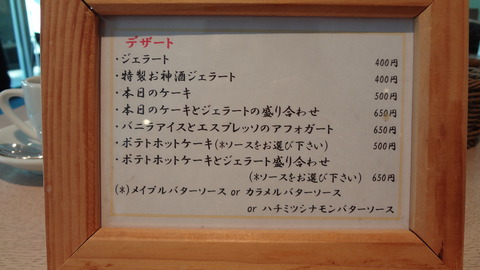 デザート
・ジェラート 400円
・特製お神酒ジェラート 400円
・本日のケーキ 500円
・本日のケーキとジェラートの盛り合わせ 650円
・バニラアイスとエスプレッソのアフォガート 650円
・ポテトホットケーキ(*ソースをお選び下さい) 500円
・ポテトホットケーキとジェラート盛り合わせ
(*ソースをお選び下さい) 650円
(*)メイプルバターソース or カラメルバターソース
or ハチミツシナモンバターソース